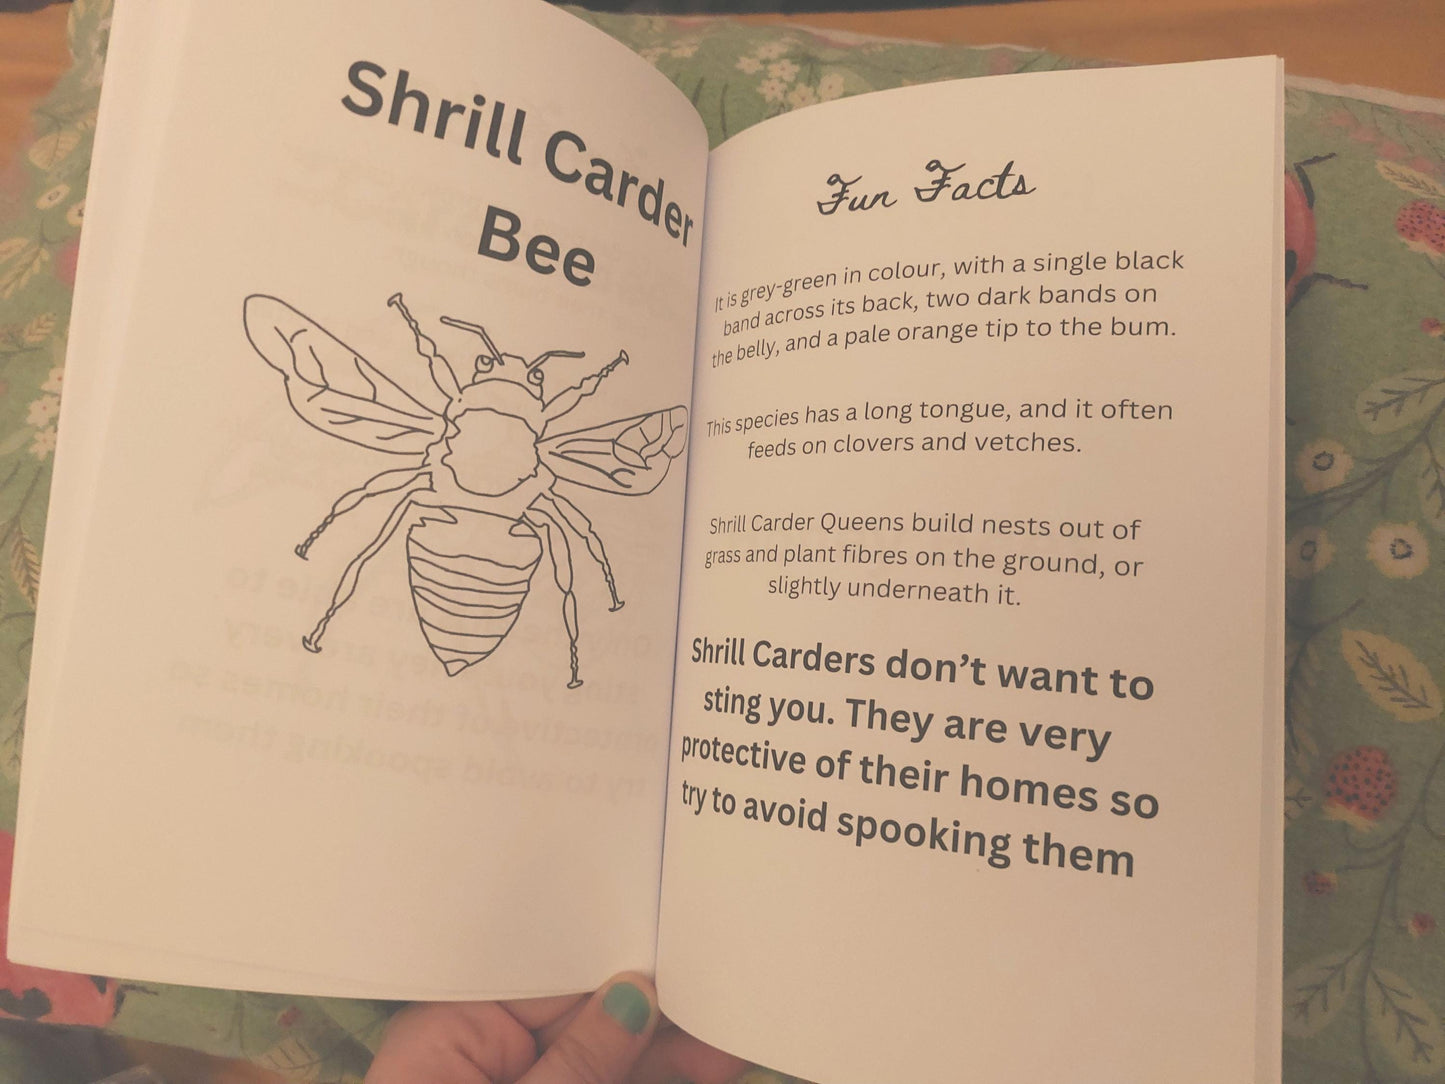 Shrill Carder
Bee
Fun Facts
It is grey-green in colour, with a single black
band across its back, two dark bands on
the belly, and a pale orange tip to the bum.
This species has a long tongue, and it often
feeds on clovers and vetches.
Shrill Carder Queens build nests out of
grass and plant fibres on the ground, or
slightly underneath it.
Shrill Carders don't want to
sting you. They are very
protective of their homes so
try to avoid spooking them